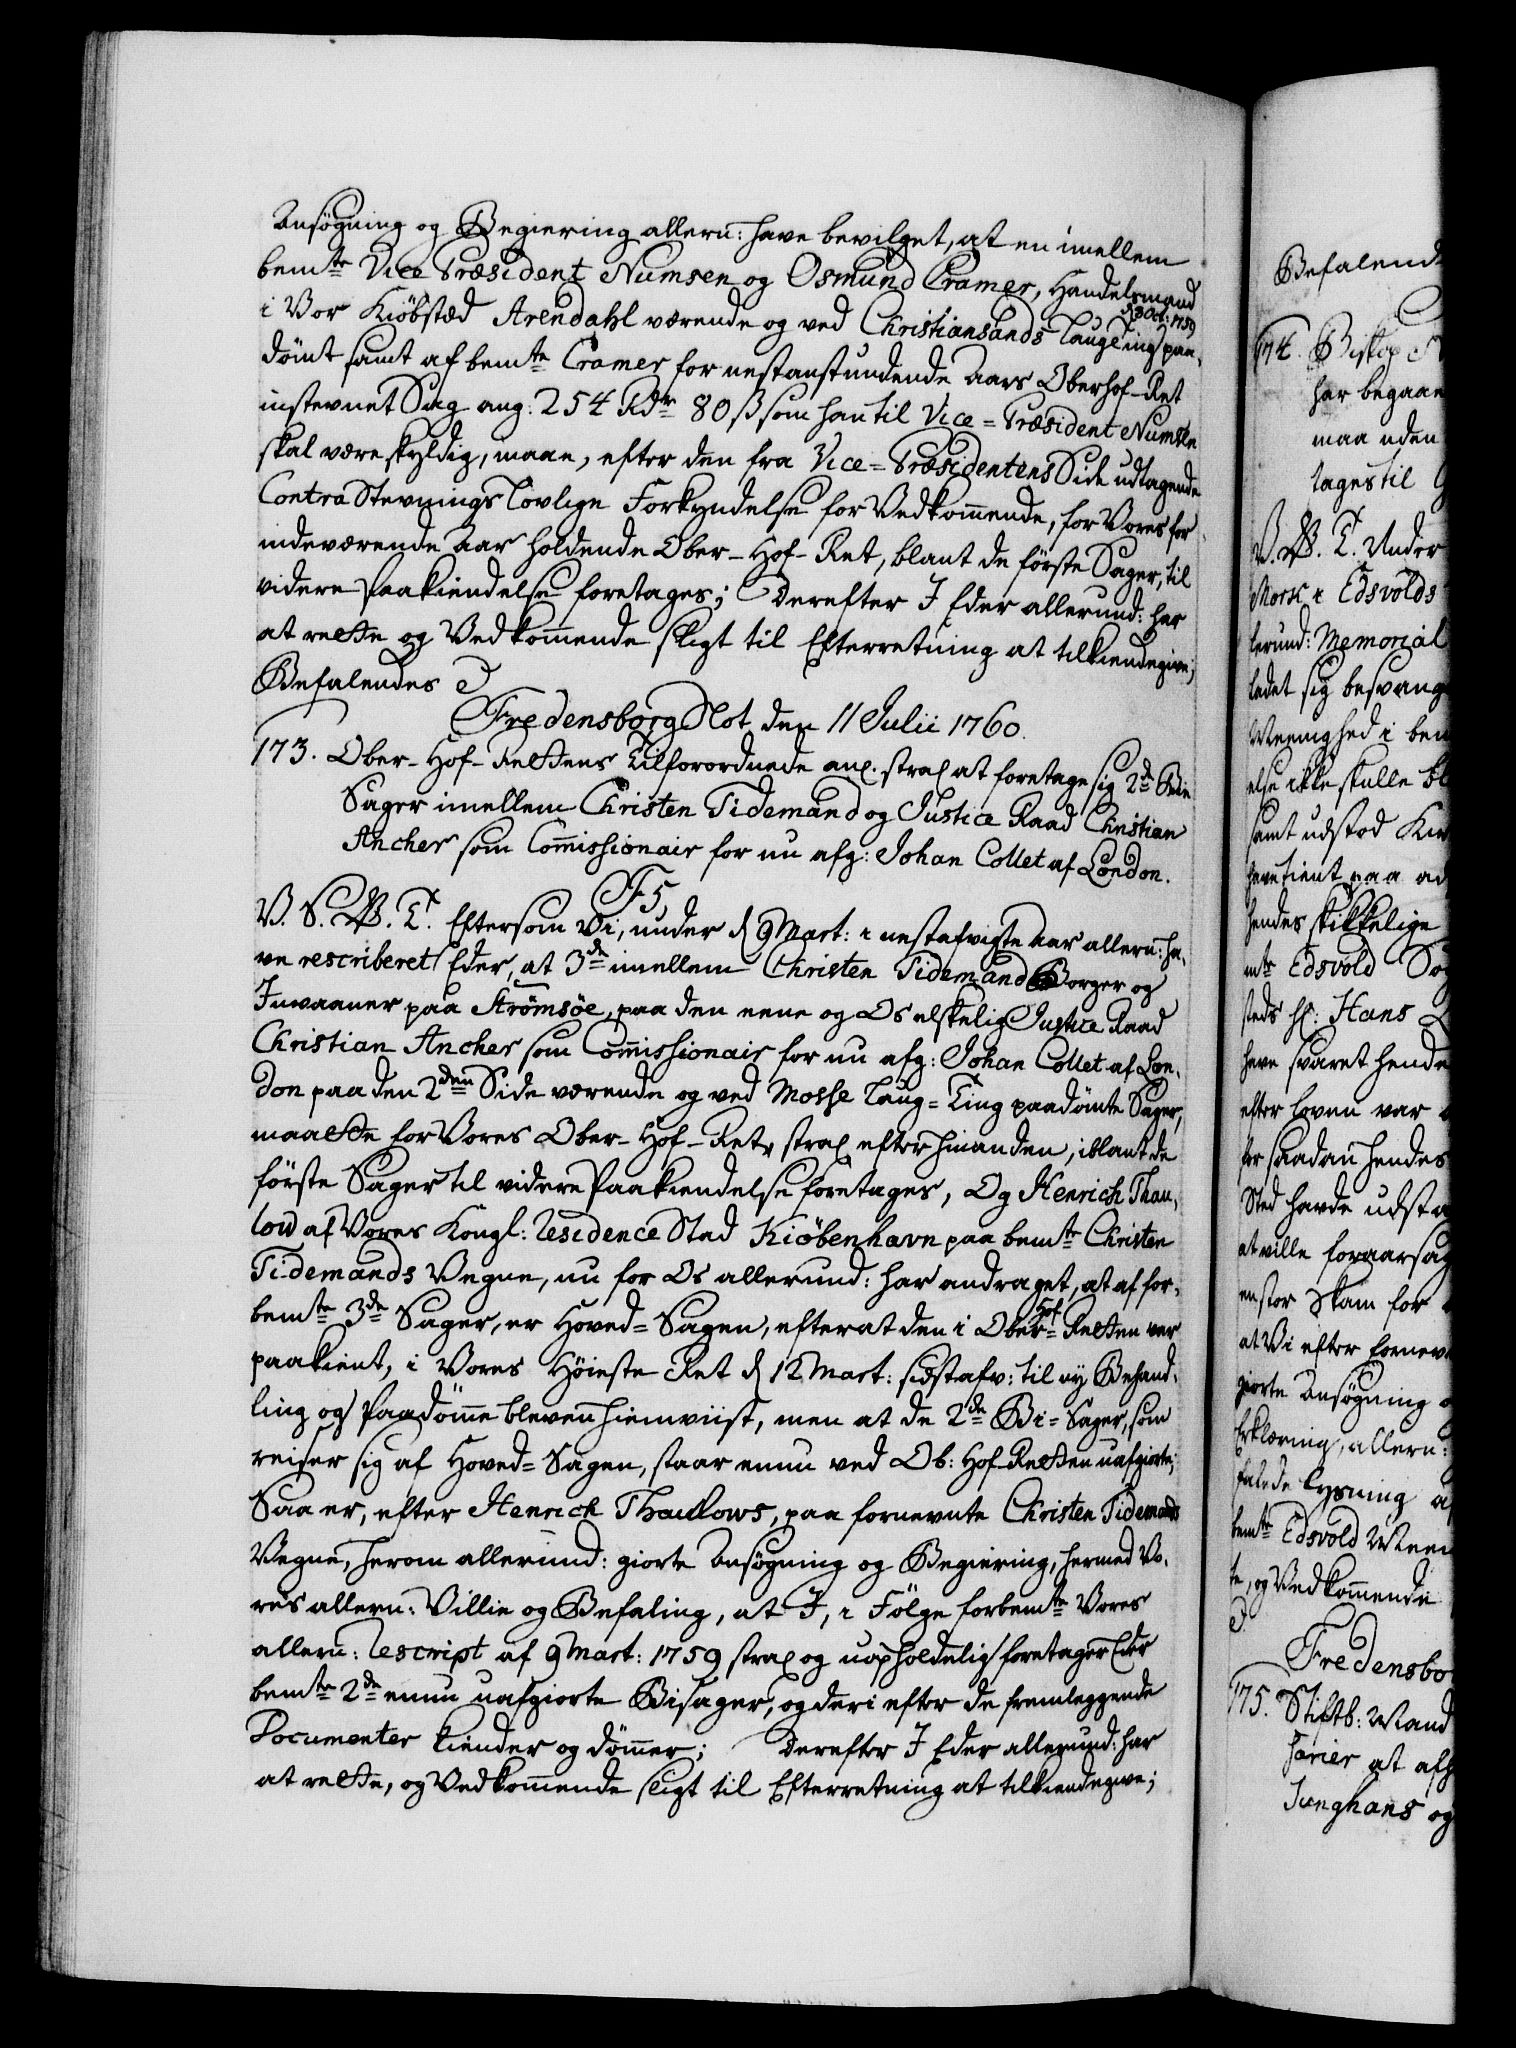 Ansøgning og Begiering allern: have bevilget, at en imellem
bemte Vice Præsident Numsen og Osmund Cramer, Handelsmand
i Vor Kiöbstæd Arendahl værende og ved Christiansands Laugting d 3 Oct: 1759 paa-
dömt samt af bemte Cramer for nestanstundende Aars Oberhof-Ret
instevnet Sag ang: 254 Rdr 80 ß som han til Vice-Præsident Numsen
skal være skyldig, maae, efter den fra Vice-Præsidentens Side udtagende
Contra Stevnings lovlige Forkyndelse for Vedkommende, for Vores for
indeværende Aar holdende Ober-Hof-Ret, blant de förste Sager, til
videre Paakiendelse foretages; Derefter I Eder allerund: har
at rette og Vedkommende sligt til Efterretning at tilkiendegive;
Befalendes
Fredensborg Slot den 11 Julii 1760.
173. Ober-Hof-Rettens Tilforordnede anl. strax at foretage sig 2de Bie
Sager imellem Christen Tidemand og Justice Raad Christian
Ancher som Commissionair for nu afg: Johan Collet af London.
F5
V. S. W. T. Eftersom Vi, under d 9 Mart: i nestafvigte Aar allern: ha-
ve rescriberet Eder, at 3de imellem Christen Tidemand Borger og
Invaaner paa Strömsöe, paa den eene og Os elskelig Justice Raad
Christian Ancher som Commissionair for nu afg: Johan Collet af Lon-
don paa den 2den Side værende og ved Mosse Laug-Ting paadömte Sager,
maatte for Vores Ober-Hof-Ret, strax efter hinanden, iblant de
förste Sager til videre Paakiendelse foretages, Og Henrich Thau-
low af Vores Kongl: Residence Stad Kiöbenhavn paa bemte Christen
Tidemands Vegne, nu for Os allerund: har andraget, at af for-
bemte 3de Sager, er Hoved-Sagen, efterat den i Ober-Hof-Retten var
paakient, i Vores Höieste Ret d 12 Mart: sidstafv: til ny Behand-
ling og Paadömme bleven hiemviist, men at de 2de Bi-Sager, som
reiser sig af Hoved-Sagen, staar ennu ved Ob: Hof-Retten uafgiorte;
Saa er, efter Henrich Thaulows, paa fornevnte Christen Tidemands
Vegne, herom allerund: giorte Ansøgning og Begiering, hermed Vo-
res allern: Villie og Befaling, at I, i Fölge forbemte Vores
allern: Rescript af 9 Mart: 1759 strax og uopholdelig foretager Eder
bemte 2de ennu uafgiorte Bisager, og deri efter de fremleggende
Documenter kiender og dömmer; Derefter I Eder allerund: har
at rette, og Vedkommende sligt til Efterretning at tilkiendegive;
Befalend
174. Biskop
har begaae
maa uden
tages til
V. W. T. Under
Mork i Edsvolds
lerund: Memorial
ladet sig besvang
Meenighed i bem
else ikke skulle bl
samt udstod Kir
have tient paa ad
hendes skikkelige
mte Edsvold Sog
steds hr: Hans
have svaret hende
efter Loven var
for saadan hendes
Sted havde udsta
at ville foraarsag
en stor Skam for
at Vi efter fornev
giorte Ansøgning o
Erklæring, allern:
falede Lysning af
bemte Edsvold Meen
te, og Vedkommende
Fredensbo
175. Stiftb: Mand
farier at afh
Junghans og